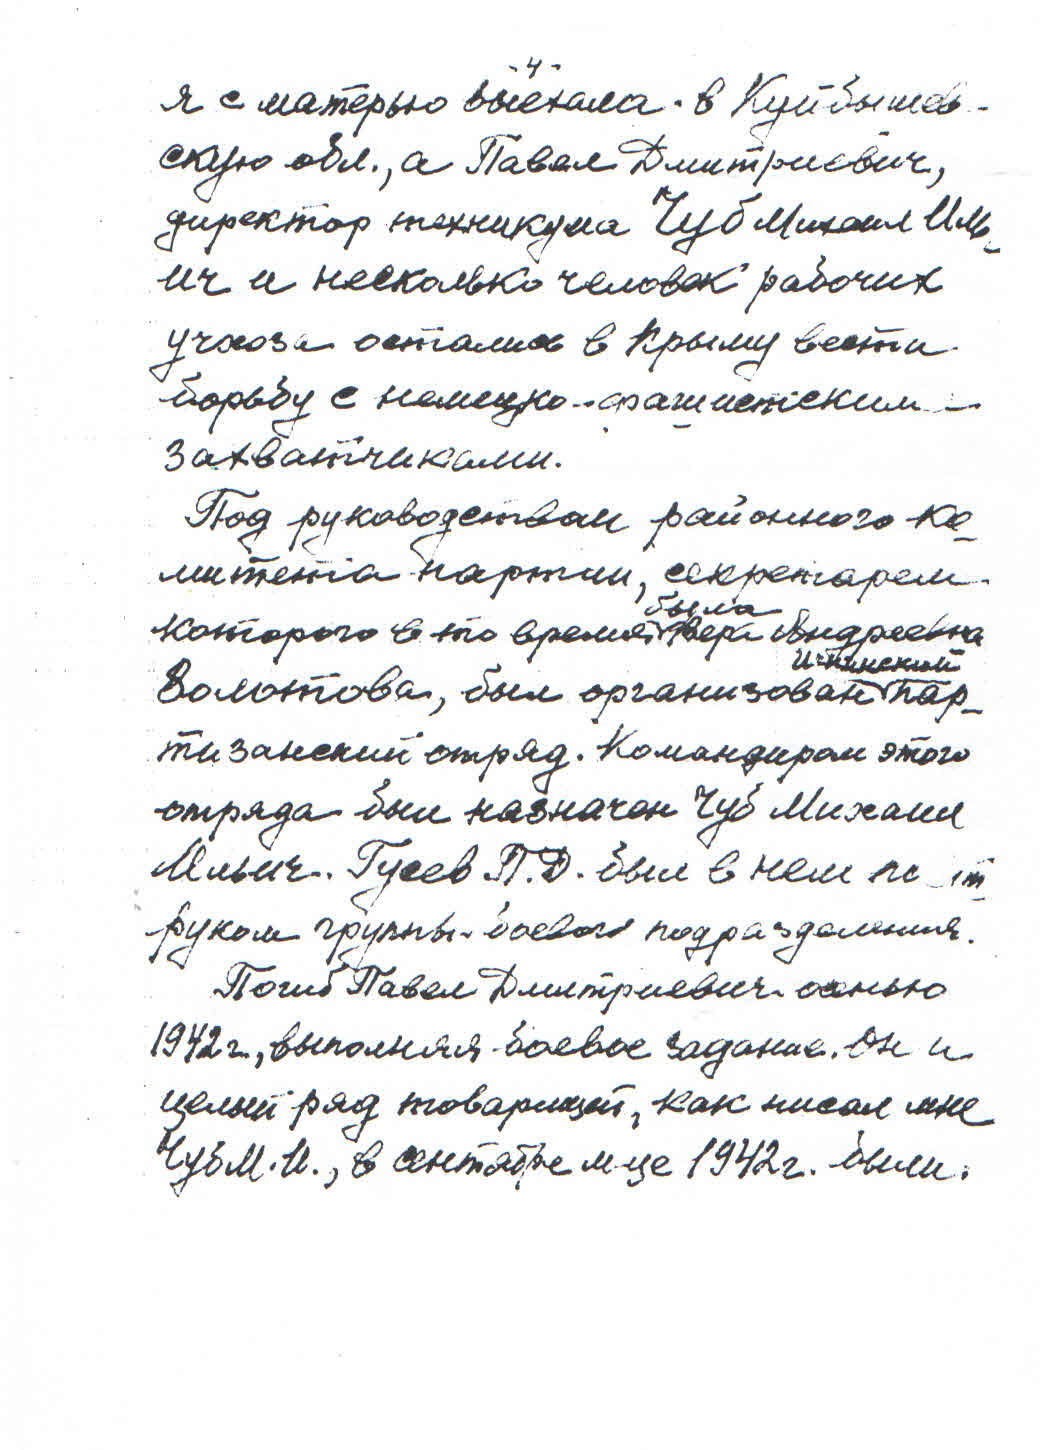 - 4 -
я с матерью выехала в Куйбышев-
скую обл., а Павел Дмитриевич,
директор техникума Чуб Михаил Иль-
ич и несколько человек рабочих
учхоза остались в Крыму вести
борьбу с немецко-фашистским-
захватчиками.
Под руководством районного ко-
митета партии, секретарем
была
которого в то время Вера Андреевна
Ичкинский
Золотова, был организован пар-
тизанский отряд. Командиром этого
отряда был назначен Чуб Михаил
Ильич. Гусев П.Д. был в нем полит
руком группы боевого подразделения.
Погиб Павел Дмитриевич осенью
1942г., выполняя боевое задание. Он и
целый ряд товарищей, как писал мне
Чуб М.И., в сентябре м-це 1942г. были